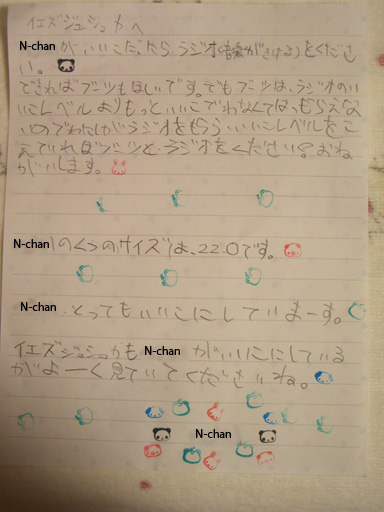 イエズジェシュカへ
N-chan が、いいこだったら ラジオ(音がきける)をくださ
い。
できればブーツもほしいです。でもブーツは、ラジオのい
いこレベルよりもっといいこでわなくてはもらえな
いのでわたしがラジオをもらういいこレベルをこ
えていればブーツと、ラジオをください?おね
がいします。
N-chan のくつのサイズは、22.0です。
N-chan とってもいいこにしていまーす。
イエズジェシュカも N-chan がいいこにしている
がよーく見ていてくださいね。
N-chan